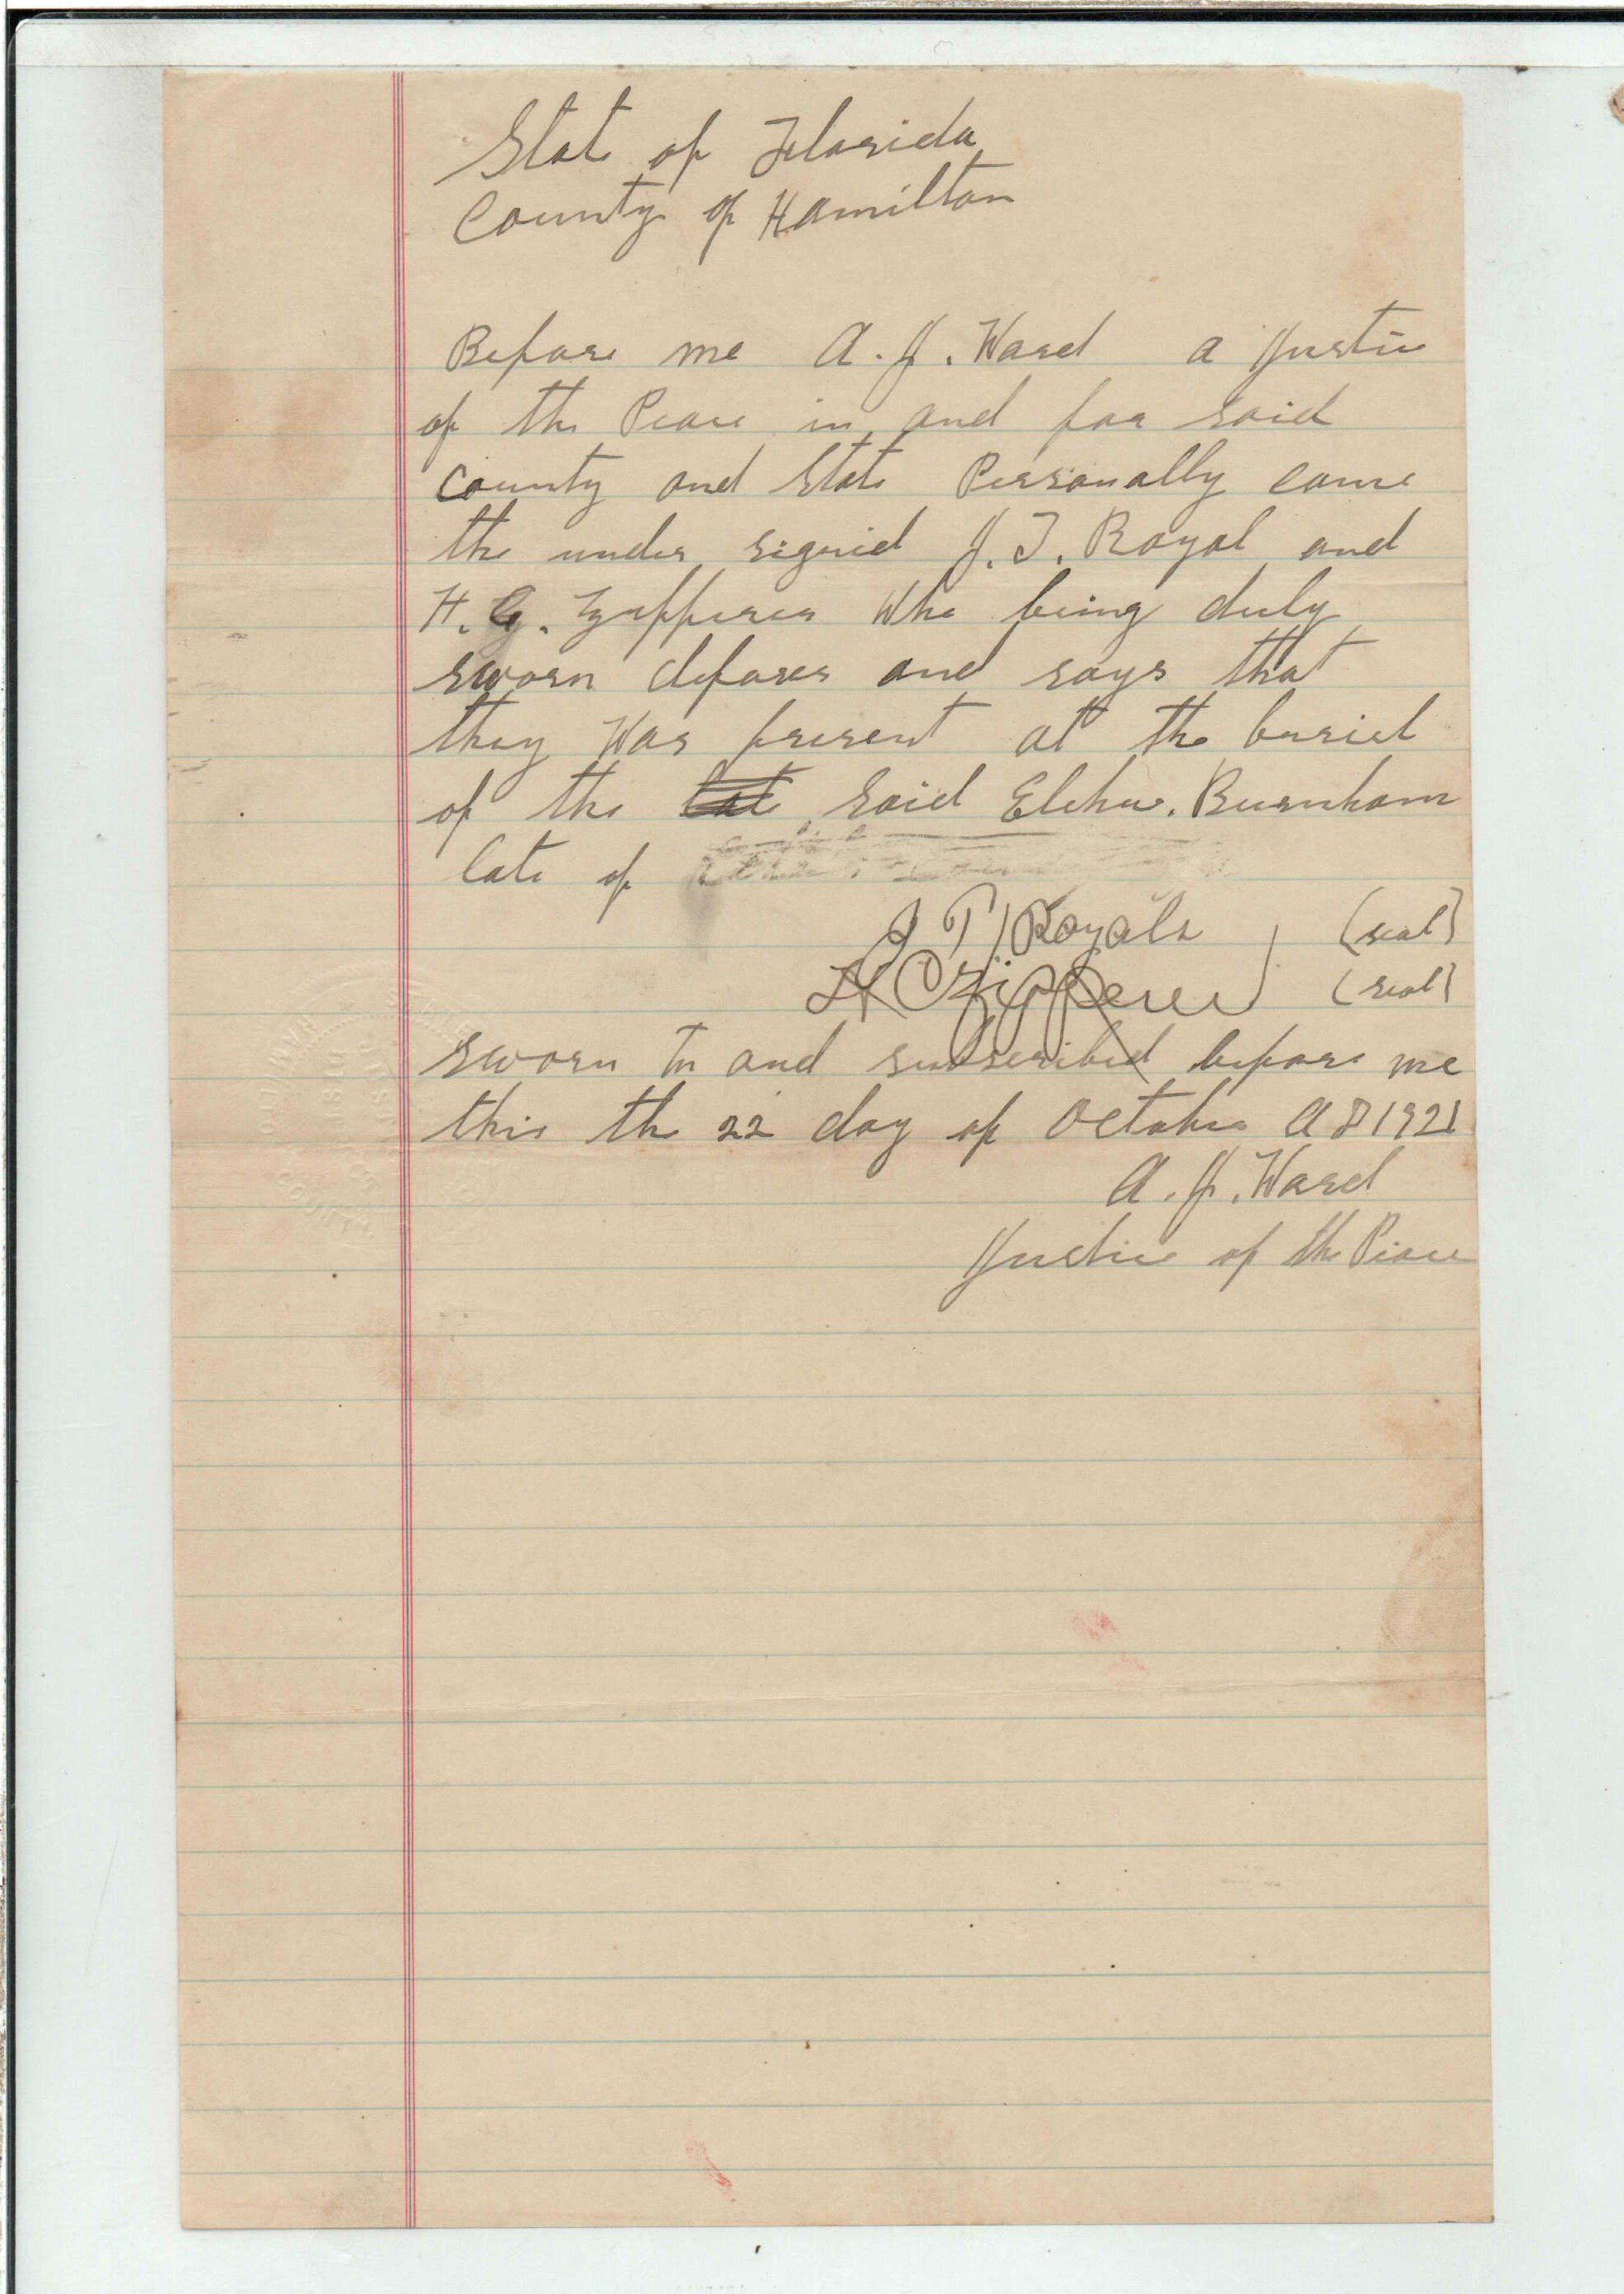 State of Florida
County of Hamilton
Before me A. J. Ward a Justice
of the Peace in and for said
County and State Personally came
the under signed J. T. Royal and
H. G. Zipperer Who being duly
sworn deposes and says that
they Was present at the buriel
of the late said Elehu. Burnham
late of
J T Royals (seal)
H G Zipperer (seal)
Sworn to and subscribed before me
this the 22 day of October A D 1921
A. J. Ward
Justice of the Peace
COUNTY